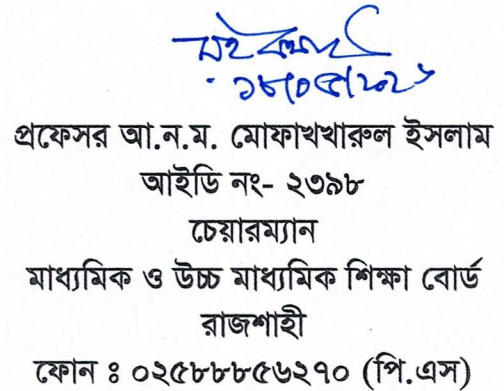 ১৮/০৫/২০২৬
প্রফেসর আ.ন.ম. মোফাখখারুল ইসলাম
আইডি নং- ২৩৯৮
চেয়ারম্যান
মাধ্যমিক ও উচ্চ মাধ্যমিক শিক্ষা বোর্ড
রাজশাহী
ফোন ঃ ০২৫৮৮৮৫৬২৭০ (পি.এস)